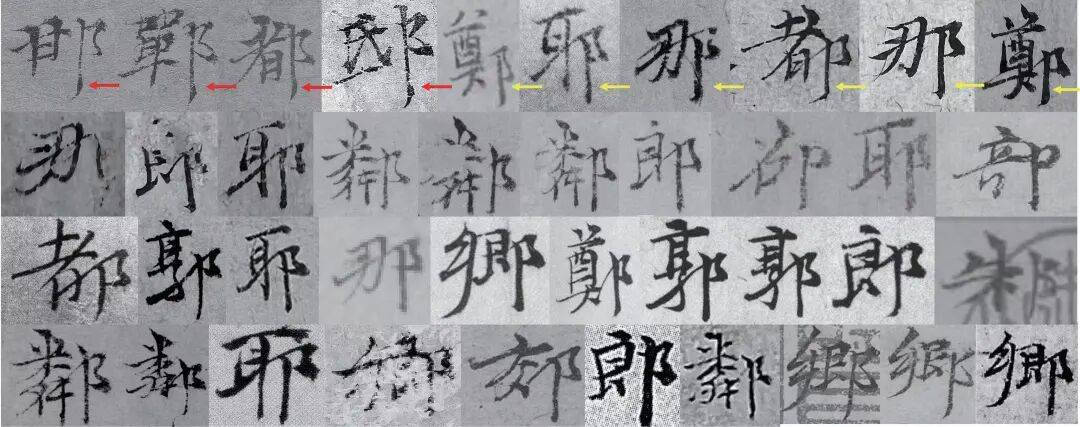 邯鄲都邸鄭耶那都那鄭
耶鄰鄰鄰郎耶部
都郭耶那鄉鄭郭郭郎
鄰鄰耶郊郎鄰鄉鄉鄉